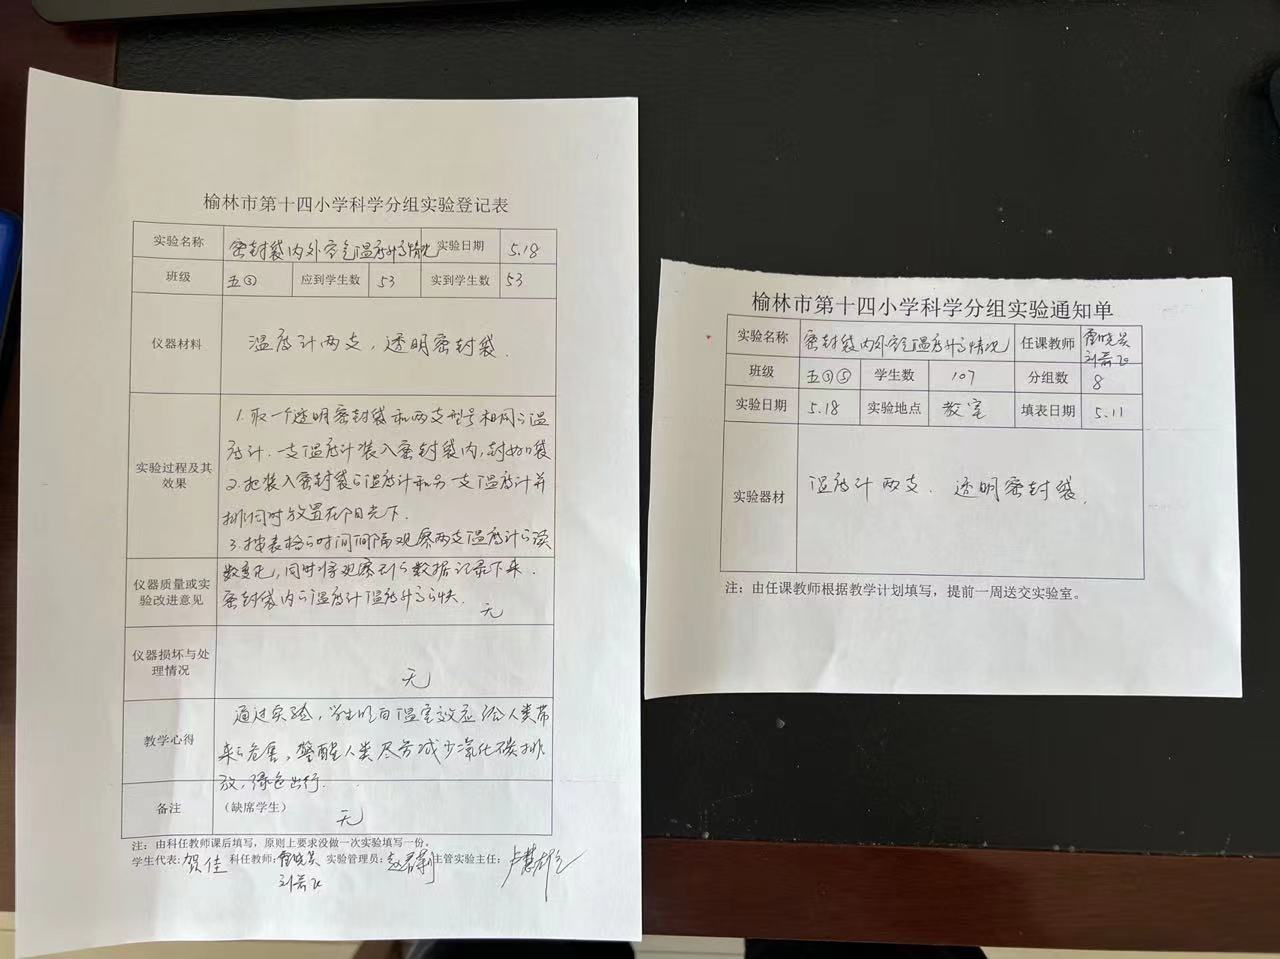 榆林市第十四小学科学分组实验登记表
实验名称 密封袋内外空气温度升高情况 实验日期 5.18
班级 五③ 应到学生数 53 实到学生数 53
仪器材料 温度计两支，透明密封袋．
实验过程及其效果
1. 取一个透明密封袋和两支型号相同的温
度计．一支温度计装入密封袋内，封好口袋
2. 把装入密封袋的温度计和另一支温度计并
排同时放置在阳光下．
3. 按表格的时间间隔观察两支温度计的读
数变化，同时将观察到的数据记录下来．
密封袋内的温度计温度升高的快．
仪器质量或实验改进意见 无
仪器损坏与处理情况 无
教学心得 通过实验，学生明白温室效应给人类带
来的危害，警醒人类尽量减少氧化碳排
放，绿色出行．
备注 （缺席学生） 无
注：由科任教师课后填写，原则上要求没做一次实验填写一份。
学生代表：贺佳 科任教师： 实验管理员： 主管实验主任：
榆林市第十四小学科学分组实验通知单
实验名称 密封袋内外空气温度升高情况 任课教师
班级 五③⑤ 学生数 107 分组数 8
实验日期 5.18 实验地点 教室 填表日期 5.11
实验器材 温度计两支．透明密封袋．
注：由任课教师根据教学计划填写，提前一周送交实验室。